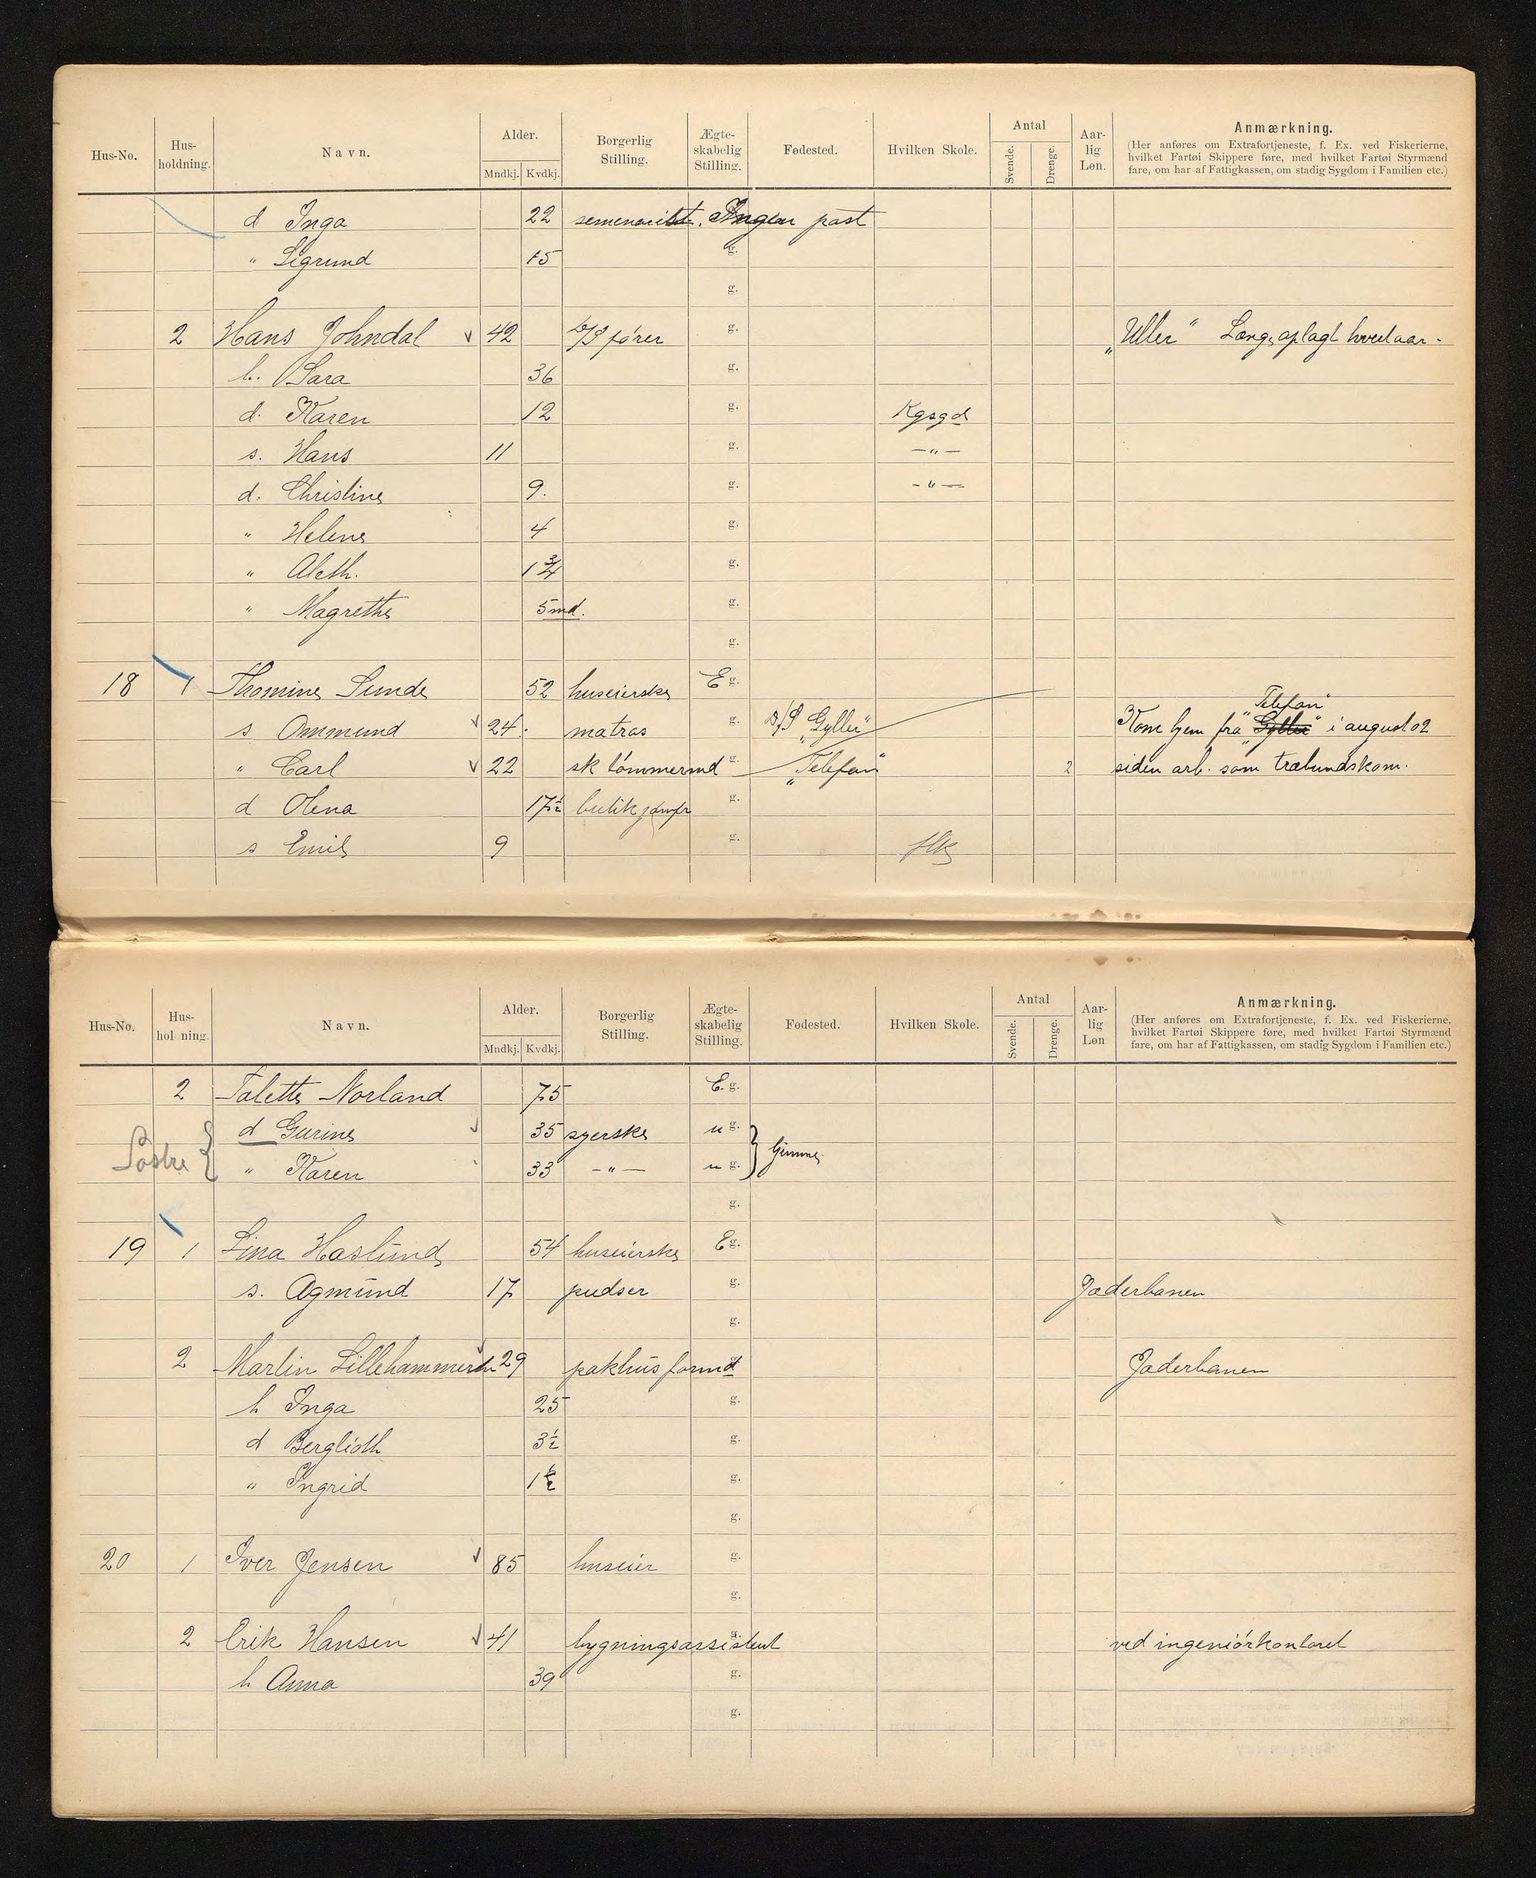 Hus-No. Hus-holdning. Navn. Alder. Mndkj. Kvdkj. Borgerlig Stilling. Ægte-skabelig Stilling. Fødested. Hvilken Skole. Antal Svende. Drenge. Aar-lig Løn. Anmærkning.
(Her anføres om Extrafortjeneste, f. Ex. ved Fiskerierne,
hvilket Fartøi Skippere føre, med hvilket Fartøi Styrmænd
fare, om har af Fattigkassen, om stadig Sygdom i Familien etc.)
d Inga 22 Ingen post
" Sigrund 15 g.
g.
2 Hans Johndal 42 D/S fører g. "Uller" Længe oplagt hvert aar.
h. Sara 36 g.
d. Karen 12 g. Kgsgd
s. Hans 11 g. -"-
d. Christine 9. g. -"-
" Helene 4 g.
" Aleth. 1 3/4 g.
" Magrethe 5 md. g.
g.
18 1 Thomine Sunde 52 huseierske E g.
s Ommund 24. matros g. D/S "Gyller" Kom hjem fra "Telefon" "Gyller" i august 02
" Carl 22 sk tømmermd g. "Telefon" 2 siden arb. som
d Olena 17 1/2 butikjomfr g.
s Emil 9 g.
Hus-No. Hus-holdning. Navn. Alder. Mndkj. Kvdkj. Borgerlig Stilling. Ægte-skabelig Stilling. Fødested. Hvilken Skole. Antal Svende. Drenge. Aar-lig Løn Anmærkning.
(Her anføres om Extrafortjeneste, f. Ex. ved Fiskerierne,
hvilket Fartøi Skippere føre, med hvilket Fartøi Styrmænd
fare, om har af Fattigkassen, om stadig Sygdom i Familien etc.)
2 Talette Norland 75 E. g.
d Gurine 35 syerske u g.
Søstre " Karen 33 -"- u g. hjemme
g.
19 1 Lina Haslund 54 huseierske E g.
s. Agmund 17 pudser g. Jæderbanen
g.
2 Martin Lillehammer 29 pakhusformd g. Jæderbanen
h Inga 25 g.
d Berglioth 3 1/2 g.
" Ingrid 1 1/2 g.
g.
20 1 Iver Jensen 85 huseier g.
g.
2 Erik Hansen 41 bygningsassistent g. ved ingeniørkontoret
h Anna 39 g.
g.